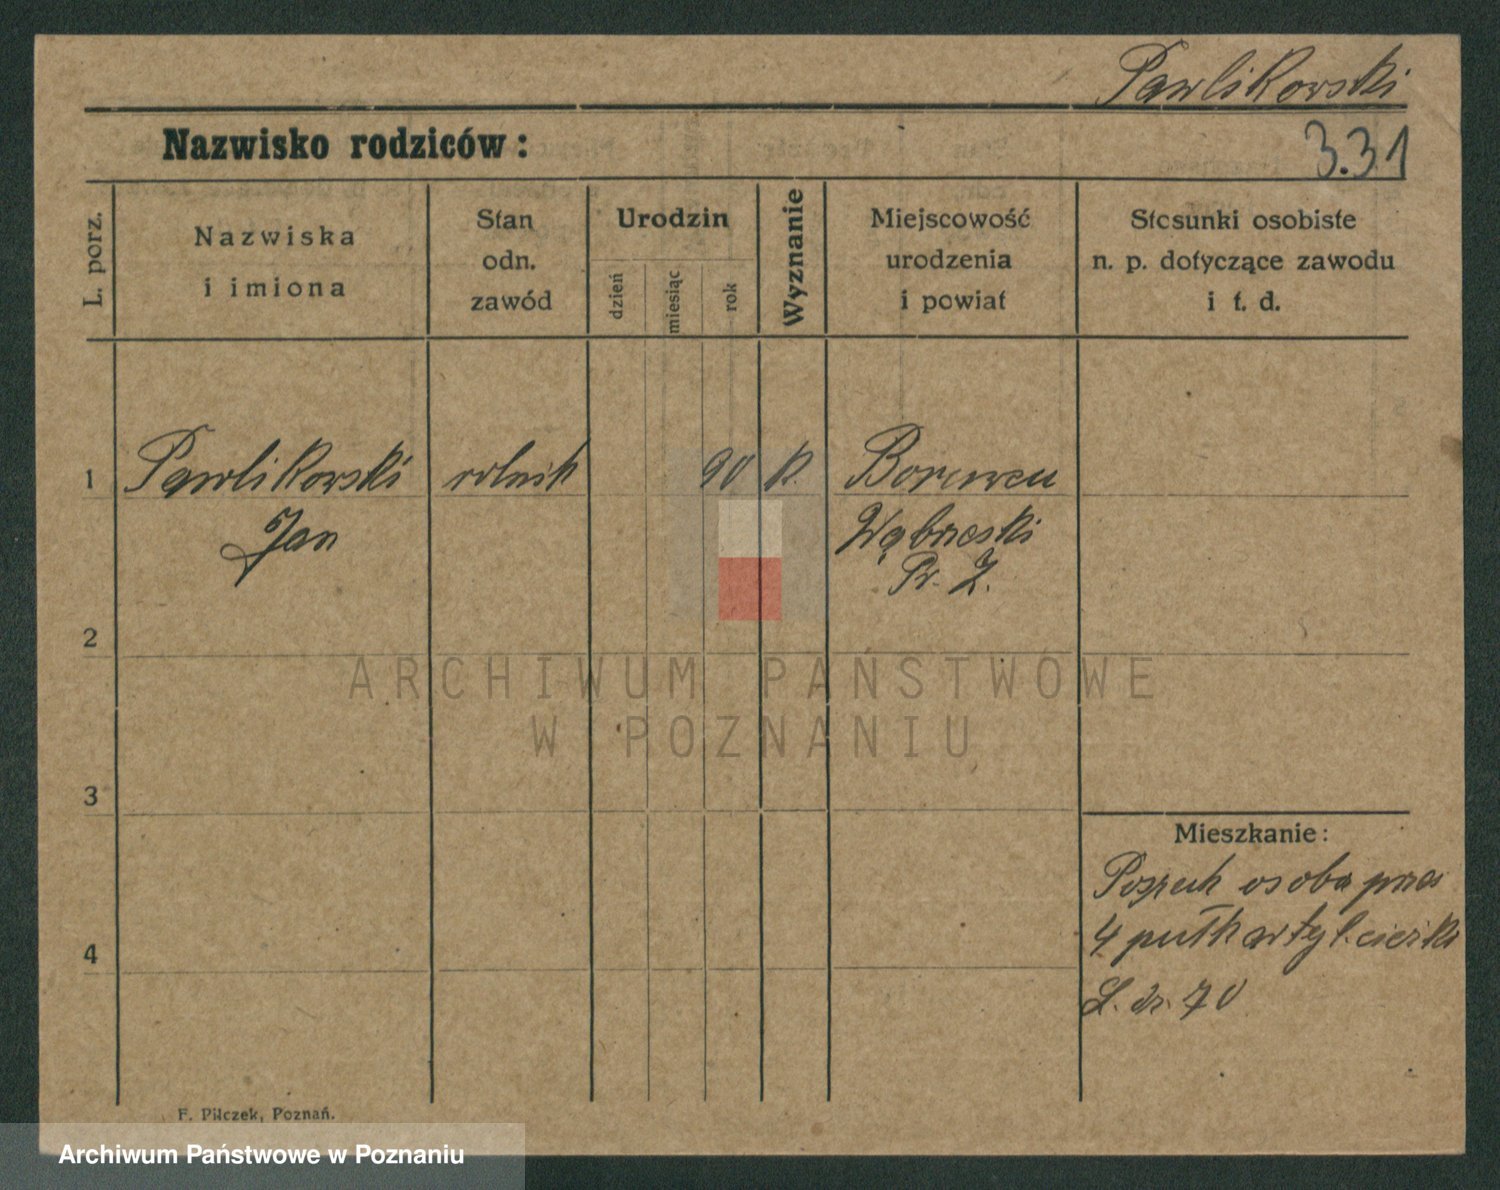 Pawlikowski
Nazwisko rodziców:
3.31
L. porz.
Nazwiska
i imiona
Stan
odn.
zawód
Urodzin
dzień
miesiąc
rok
Wyznanie
Miejscowość
urodzenia
i powiat
Stosunki osobiste
n. p. dotyczące zawodu
i t. d.
1
Pawlikowski
rolnik
90
k.
Jan
Wąbrzeski
2
ARCHIWUM PAŃSTWOWE
W POZNANIU
3
Mieszkanie:
osoba przez
4 pułk artyl. ciężki
L. dz. 70
4
F. Pilczek, Poznań.
Archiwum Państwowe w Poznaniu